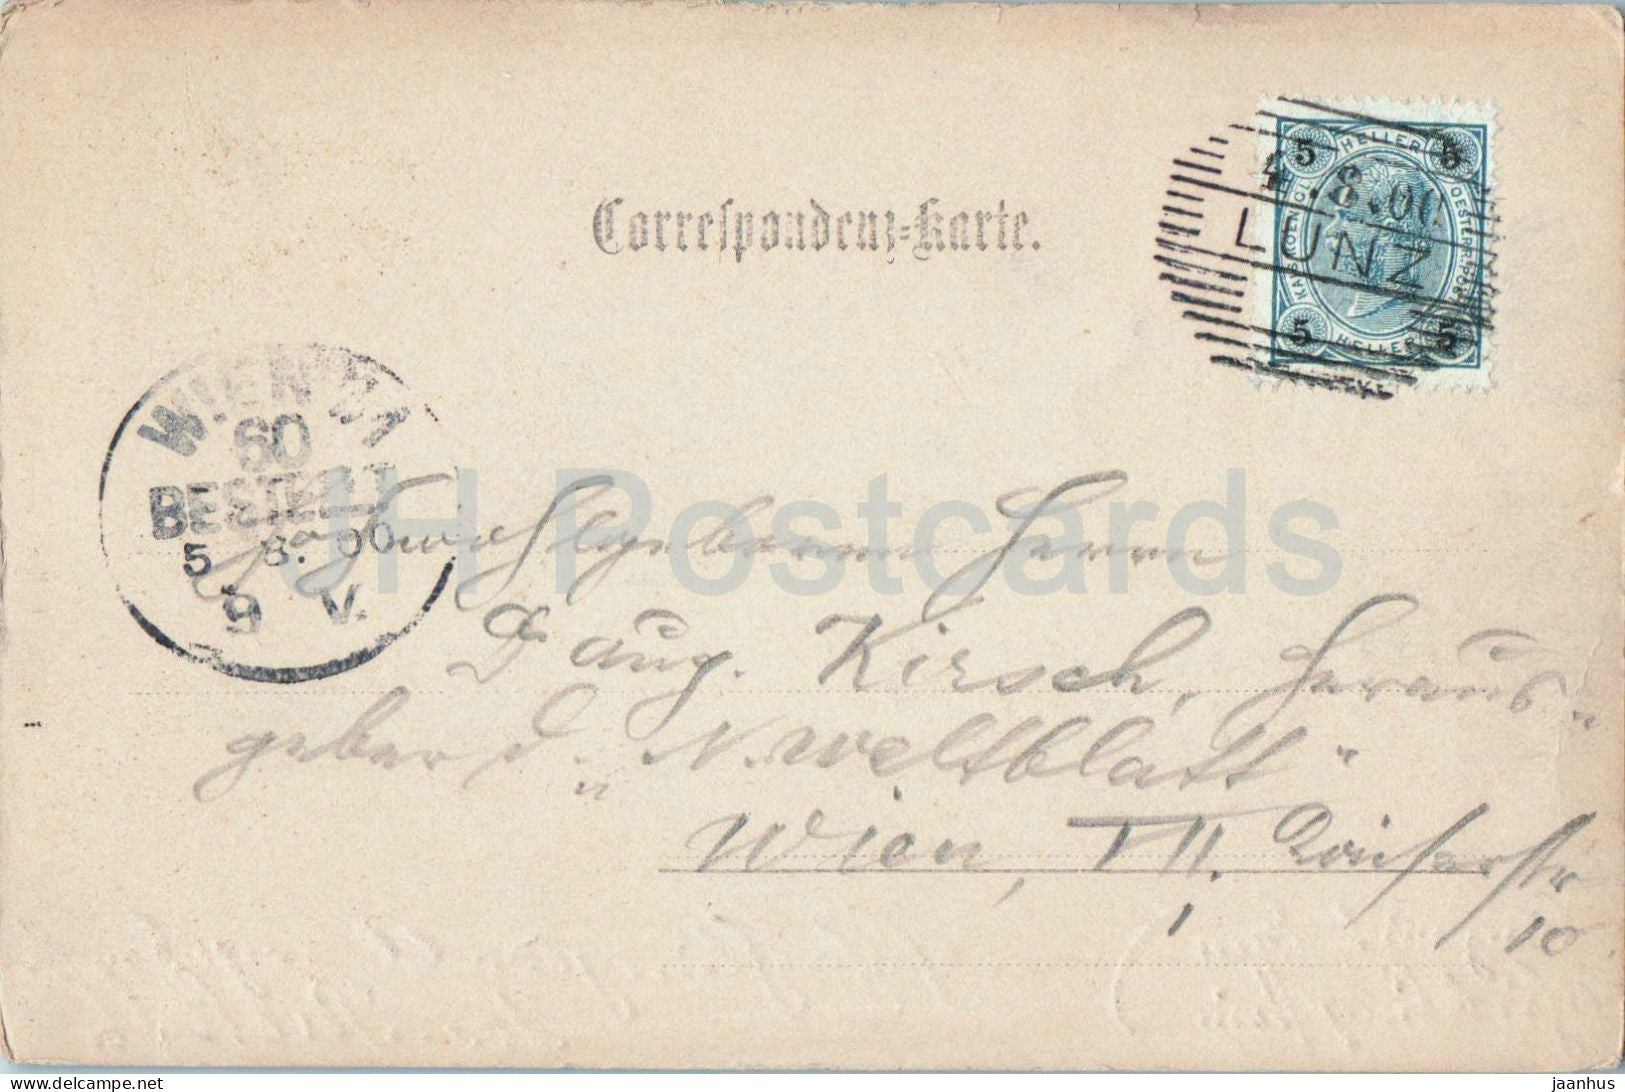 Correspondenz-Karte.
5 HELLER 5
KAIS. KOENIGL. OESTERR. POST
5 HELLER 5
4.8.00
LUNZ
WIEN
60
BESTELLT
5 8. 00
9 V.
JH Postcards
Hochwohlgeboren Herrn
Dr Aug. Kirsch, Heraus-
geber d. „N. Weltblatt"
Wien, VII.
10
jaanhus